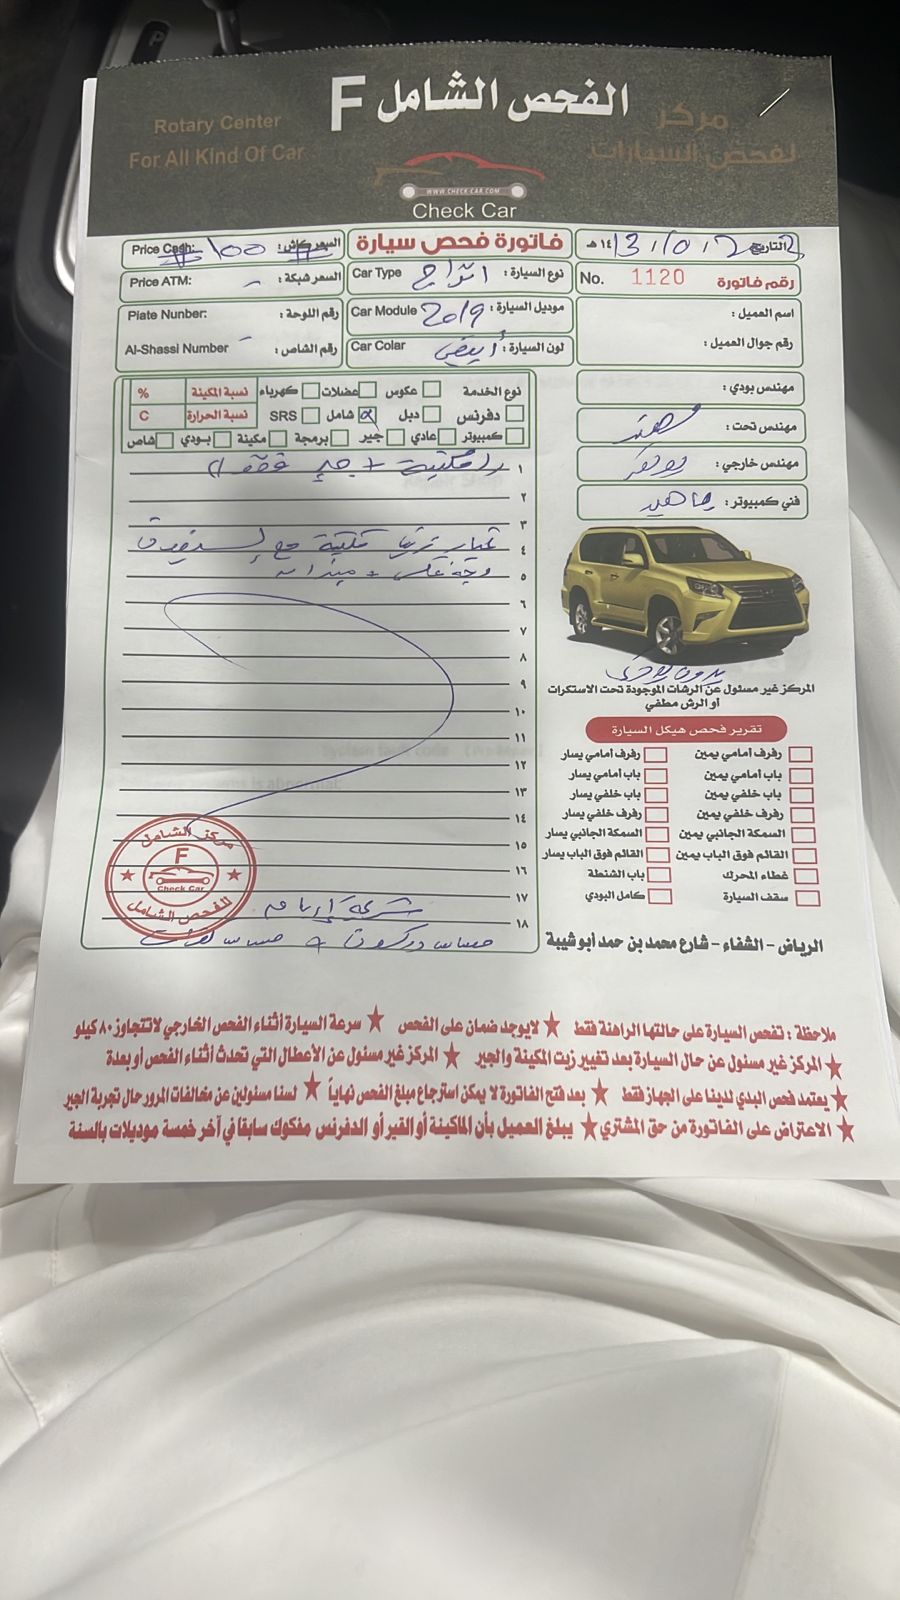 الفحص الشامل F
Rotary Center
For All Kind Of Car
مركز
لفحص السيارات
WWW.CHECK-CAR.COM
Check Car
Price Cash: 100 السعر كاش:
فاتورة فحص سيارة
التاريخ 13/10/2023 ١٤هـ
Price ATM: - السعر شبكة:
Car Type نوع السيارة:
No. 1120 رقم فاتورة
Plate Nunber: رقم اللوحة:
Car Module 2019 موديل السيارة:
اسم العميل:
Al-Shassi Number - رقم الشاص:
Car Colar أبيض لون السيارة:
رقم جوال العميل:
نوع الخدمة عكوس عضلات كهرباء نسبة المكينة %
دفرنس دبل شامل SRS نسبة الحرارة C
كمبيوتر عادي جير برمجة مكينة بودي شاص
مهندس بودي:
مهندس تحت:
مهندس خارجي:
فني كمبيوتر:
١
٢
٣
٤
٥
٦
٧
٨
٩
١٠
١١
١٢
١٣
١٤
١٥
١٦
١٧
١٨
مركز الشامل
F
Check Car
للفحص الشامل
حساس + حساس
المركز غير مسئول عن الرشات الموجودة تحت الاستكرات
أو الرش مطفي
تقرير فحص هيكل السيارة
رفرف أمامي يمين رفرف أمامي يسار
باب أمامي يمين باب أمامي يسار
باب خلفي يمين باب خلفي يسار
رفرف خلفي يمين رفرف خلفي يسار
السمكة الجانبي يمين السمكة الجانبي يسار
القائم فوق الباب يمين القائم فوق الباب يسار
غطاء المحرك باب الشنطة
سقف السيارة كامل البودي
الرياض - الشفاء - شارع محمد بن حمد أبو شيبة
ملاحظة : تفحص السيارة على حالتها الراهنة فقط ★ لايوجد ضمان على الفحص ★ سرعة السيارة أثناء الفحص الخارجي لاتتجاوز ٨٠ كيلو
★ المركز غير مسئول عن حال السيارة بعد تغيير زيت المكينة والجير ★ المركز غير مسئول عن الأعطال التي تحدث أثناء الفحص أو بعدة
★ يعتمد فحص البدي لدينا على الجهاز فقط ★ بعد فتح الفاتورة لا يمكن استرجاع مبلغ الفحص نهاياً ★ لسنا مسئولين عن مخالفات المرور حال تجربة الجير
★ الاعتراض على الفاتورة من حق المشتري ★ يبلغ العميل بأن الماكينة أو القير أو الدفرنس مفكوك سابقا في آخر خمسة موديلات بالسنة